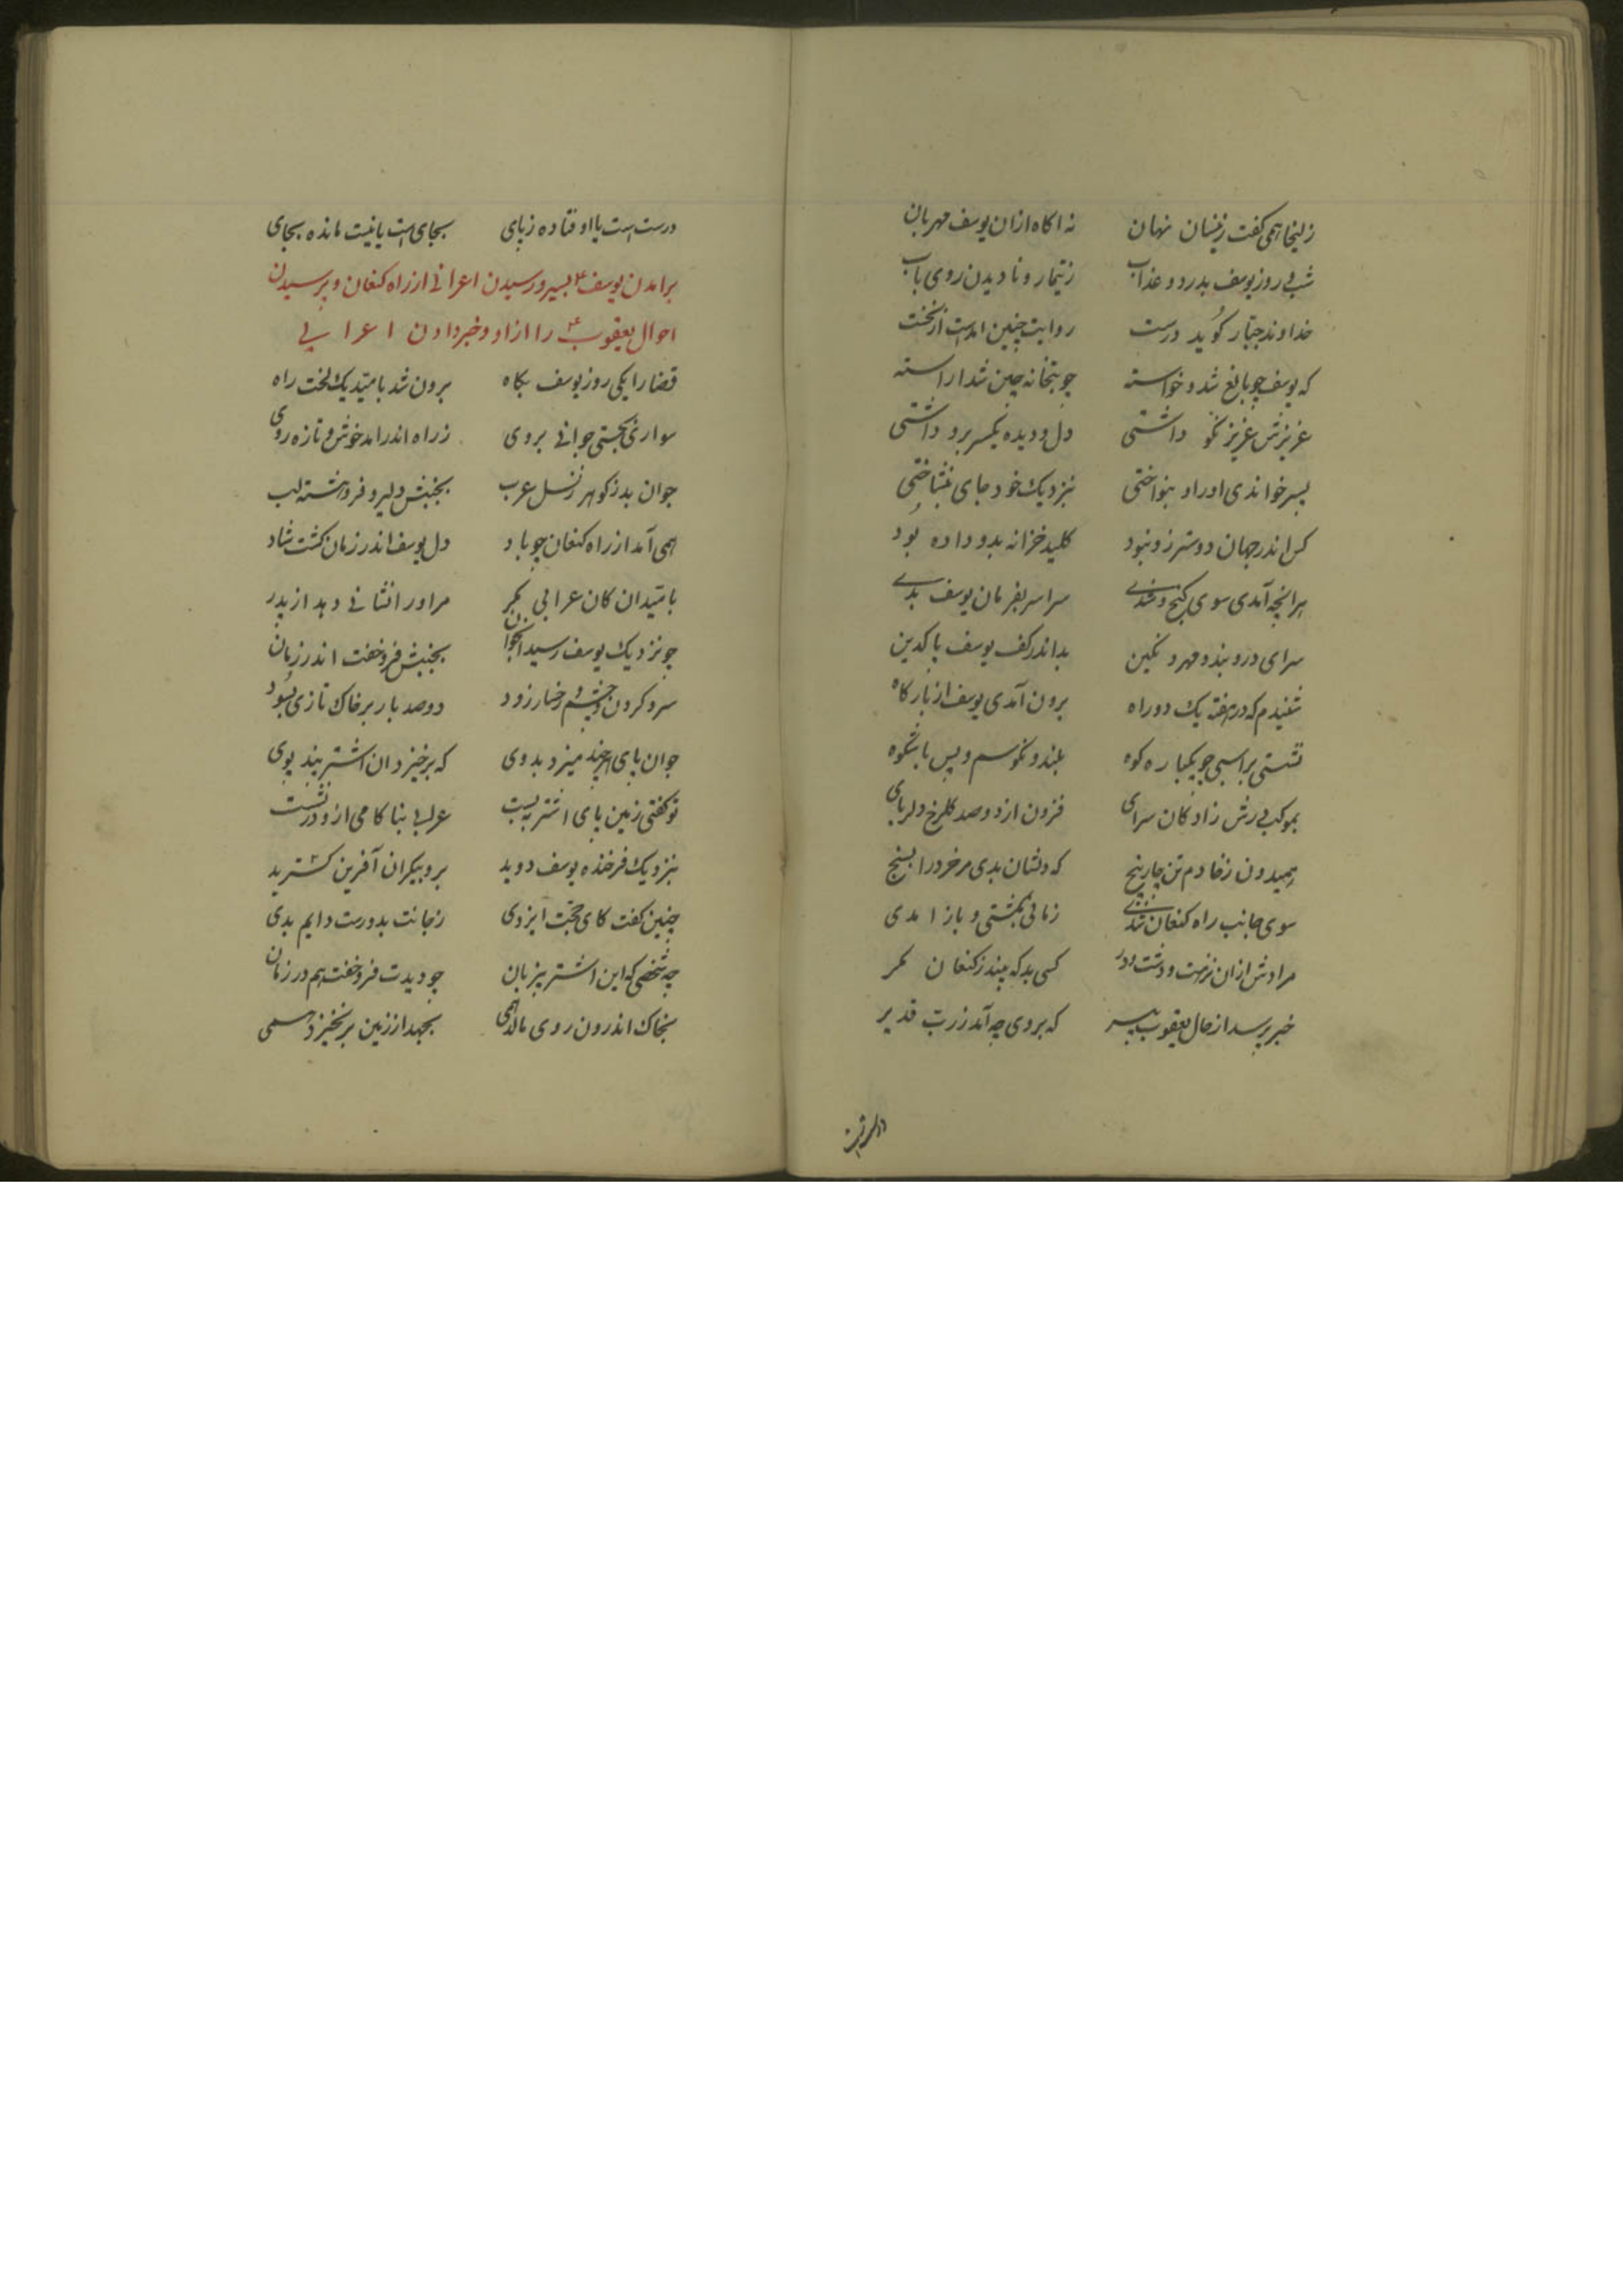 زلیخا همی کفت زینسان نهان نه اکاه ازان یوسف مهربان
شب و روز یوسف بدرد و عذاب ز تیمار و نادیدن روی باب
خداوند جبّار کوید درست روایت چنین امدست از نخست
که یوسف چو بالغ شد و خواسته چو بتخانه چین شد اراسته
عزیزش عزیز نکو داشتی دل و دیده یکسر برو داشتی
پسر خواندی او را و بنواختی نزدیک خود جای بنشاختی
کس اندر جهان دوستر زو نبود کلید خزانه بدو داده بود
هرانچه آمدی سوی کنج و شدی سراسر بفرمان یوسف بدی
سرای و در و بند و مهر و نکین بد اندر کف یوسف پاکدین
شنیدم که در هفته یک دو راه برون آمدی یوسف از بارکاه
نشستی بر اسبی چو یکباره کوه بلند و نکو سم و پس باشکوه
بموکب درش زادکان سرای فزون از دو صد کلرخ دلربای
همیدون ز خادم تن چار پنج که دلشان بدی مر خرد را بسنج
سوی جانب راه کنعان شدی زمانی بکشتی و باز امدی
مرادش ازان نزهت و دشت و در کسی بد که بیند ز کنعان مکر
خبر پرسد از حال یعقوب پیر که بر وی چه آمد ز ربّ قدیر
درست است
درست است یا اوفتاده ز پای بجای است یا نیست مانده بجای
برامدن یوسف ع بسیر و رسیدن اعرابی از راه کنعان و پرسیدن
احوال یعقوب ع را از او و خبر دادن اعرابی
قضا را یکی روز یوسف بکاه برون شد بامّید یک لخت راه
سواری بجستی جوانی بروی ز راه اندر امد خوش و تازه روی
جوان بد ز کوهر ز نسل عرب بجنبش دلیر و فروهشته لب
همی آمد از راه کنعان چو باد دل یوسف اندر زمان کشت شاد
بامّید ان کان عرابی مکر مر او را نشانی دهد از پدر
چو نزدیک یوسف رسید انجوان بجنبش فرو خفت اندر زمان
سر و کردن و چشم و رخسار زود دو صد بار بر خاک تازی بسود
جوان پای هرچند میزد بدوی که برخیزد ان اشتر بیند پوی
تو کفتی زمین پای اشتر ببست عرابی بناکامی از وی درنشست
بنزدیک فرخنده یوسف دوید برو بیکران آفرین کسترید
چنین کفت کای حجّت ایزدی ز جانت بد و رست دایم بدی
چه شخصی که این اشتر بیزبان چو دیدت فرو خفت هم در زمان
بخاک اندرون روی مالد همی بجهد از زمین برنخیزد همی